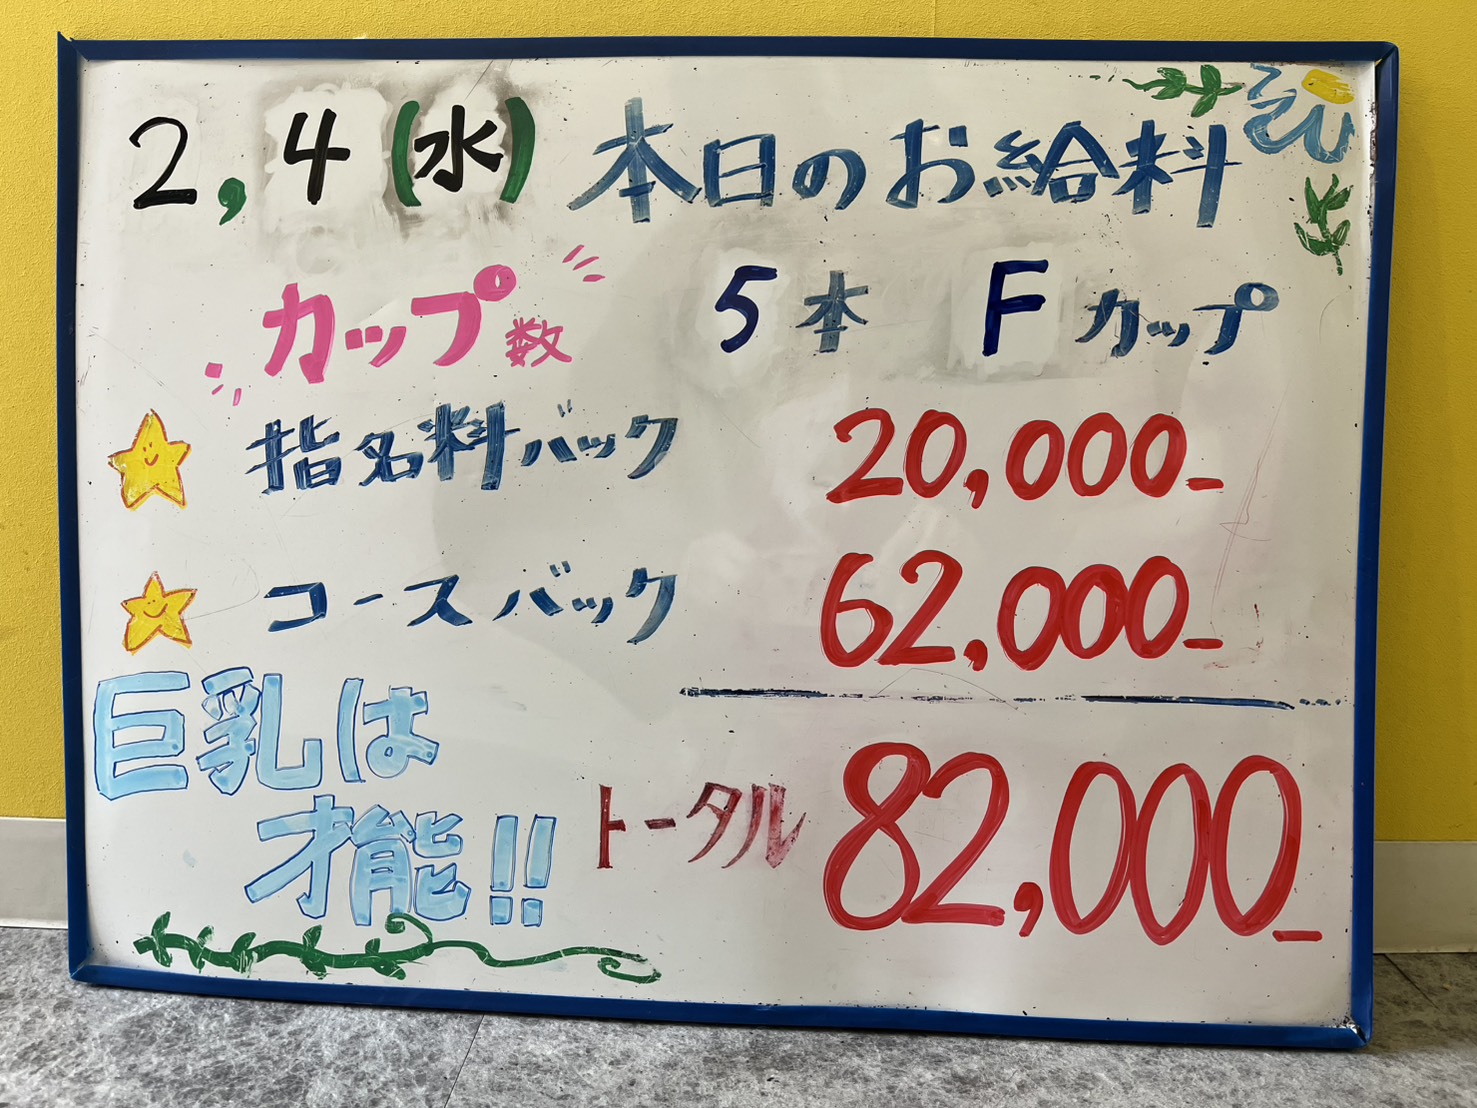 2,4(水) 本日のお給料
カップ数 5本 Fカップ
指名料バック 20,000-
コースバック 62,000-
巨乳は
才能!!
トータル 82,000-